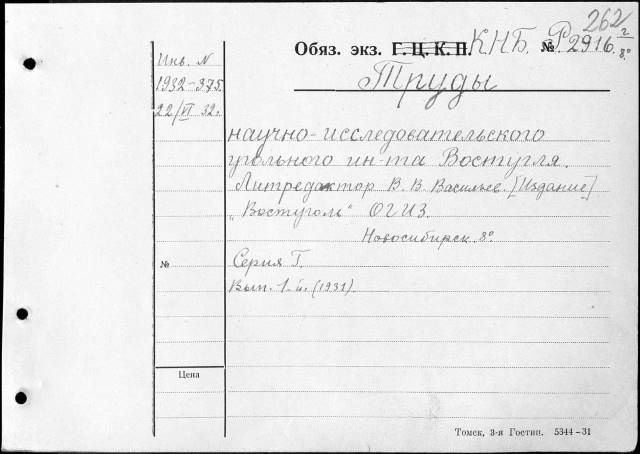 262
Обяз. экз. Г. Ц. К. П. К.Н.Б. № Р.2916. 2/8°
Труды
Инв. N
1932-375
22/VI 32г.
научно-исследовательского
угольного ин-та Востугля.
Литредактор В. В. Васильев. [Издание]
„Востуголь" ОГИЗ.
Новосибирск. 8°
№
Серия Г.
Вып. 1-й. (1931).
Цена
Томск, 3-я Гостип. 5344-31